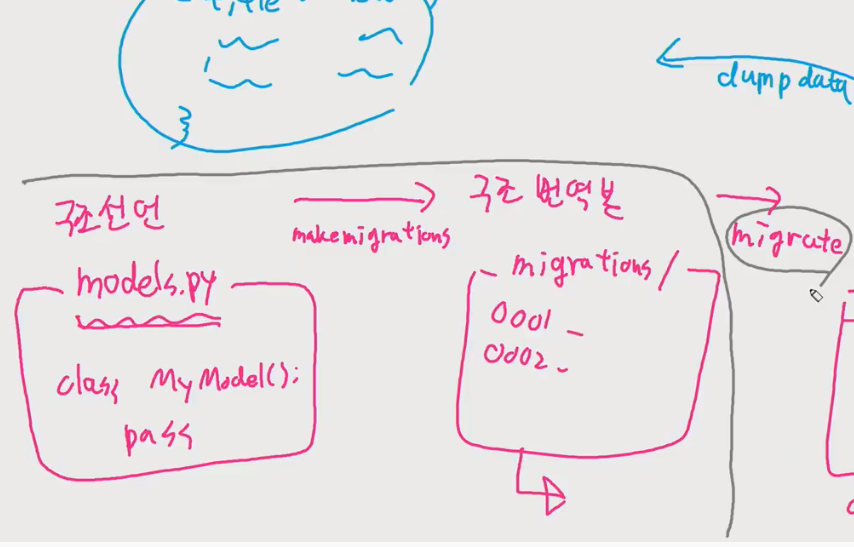 title
dumpdata
구조선언
makemigrations
구조 번역본
migrate
models.py
class MyModel():
pass
migrations/
0001_
0002_